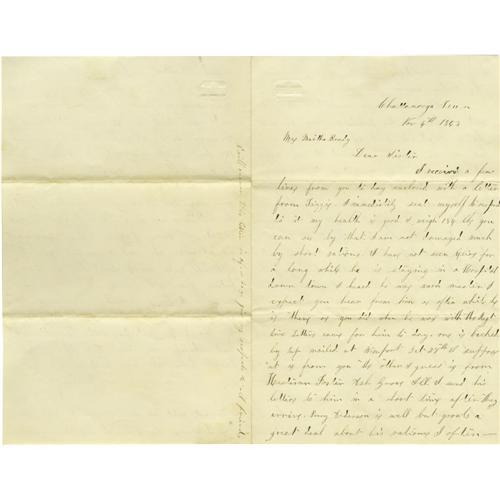 Chattanooga Tenn
Nov 4th 1863
Mrs Martha Ready
Dear Sister
I received a few
lines from you to day enclosed with a letter
from Lizzie. I immediately seat myself to respond
to it my health is good I weigh 184 lbs you
can see by that I am not damaged much
by short rations. I have not seen for
a long while he is staying in a Hospital
down town I heard he was ward master I
expect you hear from him as often while he
is there as you did when he was with the Regt
two letters came for him to day. one is backed
by mailed at Oct 28th I suppose
it is from you the other I guess is from
Ills I will send his
letters to him in a short time after they
arrive. Anderson is well but growls a
great deal about his rations I often